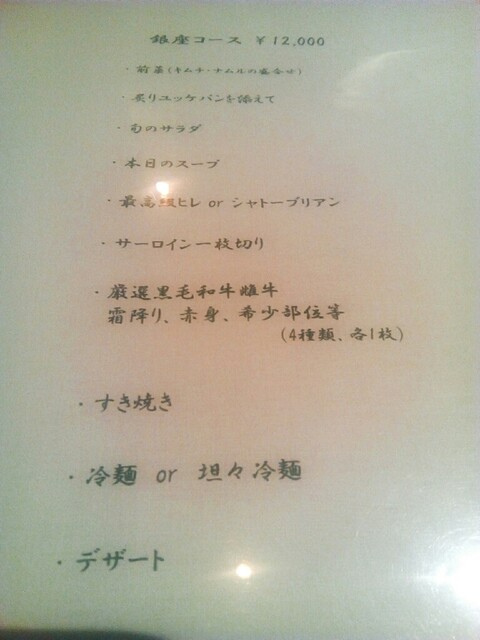 銀座コース ￥12,000
・前菜(キムチ・ナムルの盛合せ)
・炙りユッケパンを添えて
・旬のサラダ
・本日のスープ
・最高級ヒレ or シャトーブリアン
・サーロイン一枚切り
・厳選黒毛和牛雌牛
霜降り、赤身、希少部位等
(4種類、各1枚)
・すき焼き
・冷麺 or 坦々冷麺
・デザート